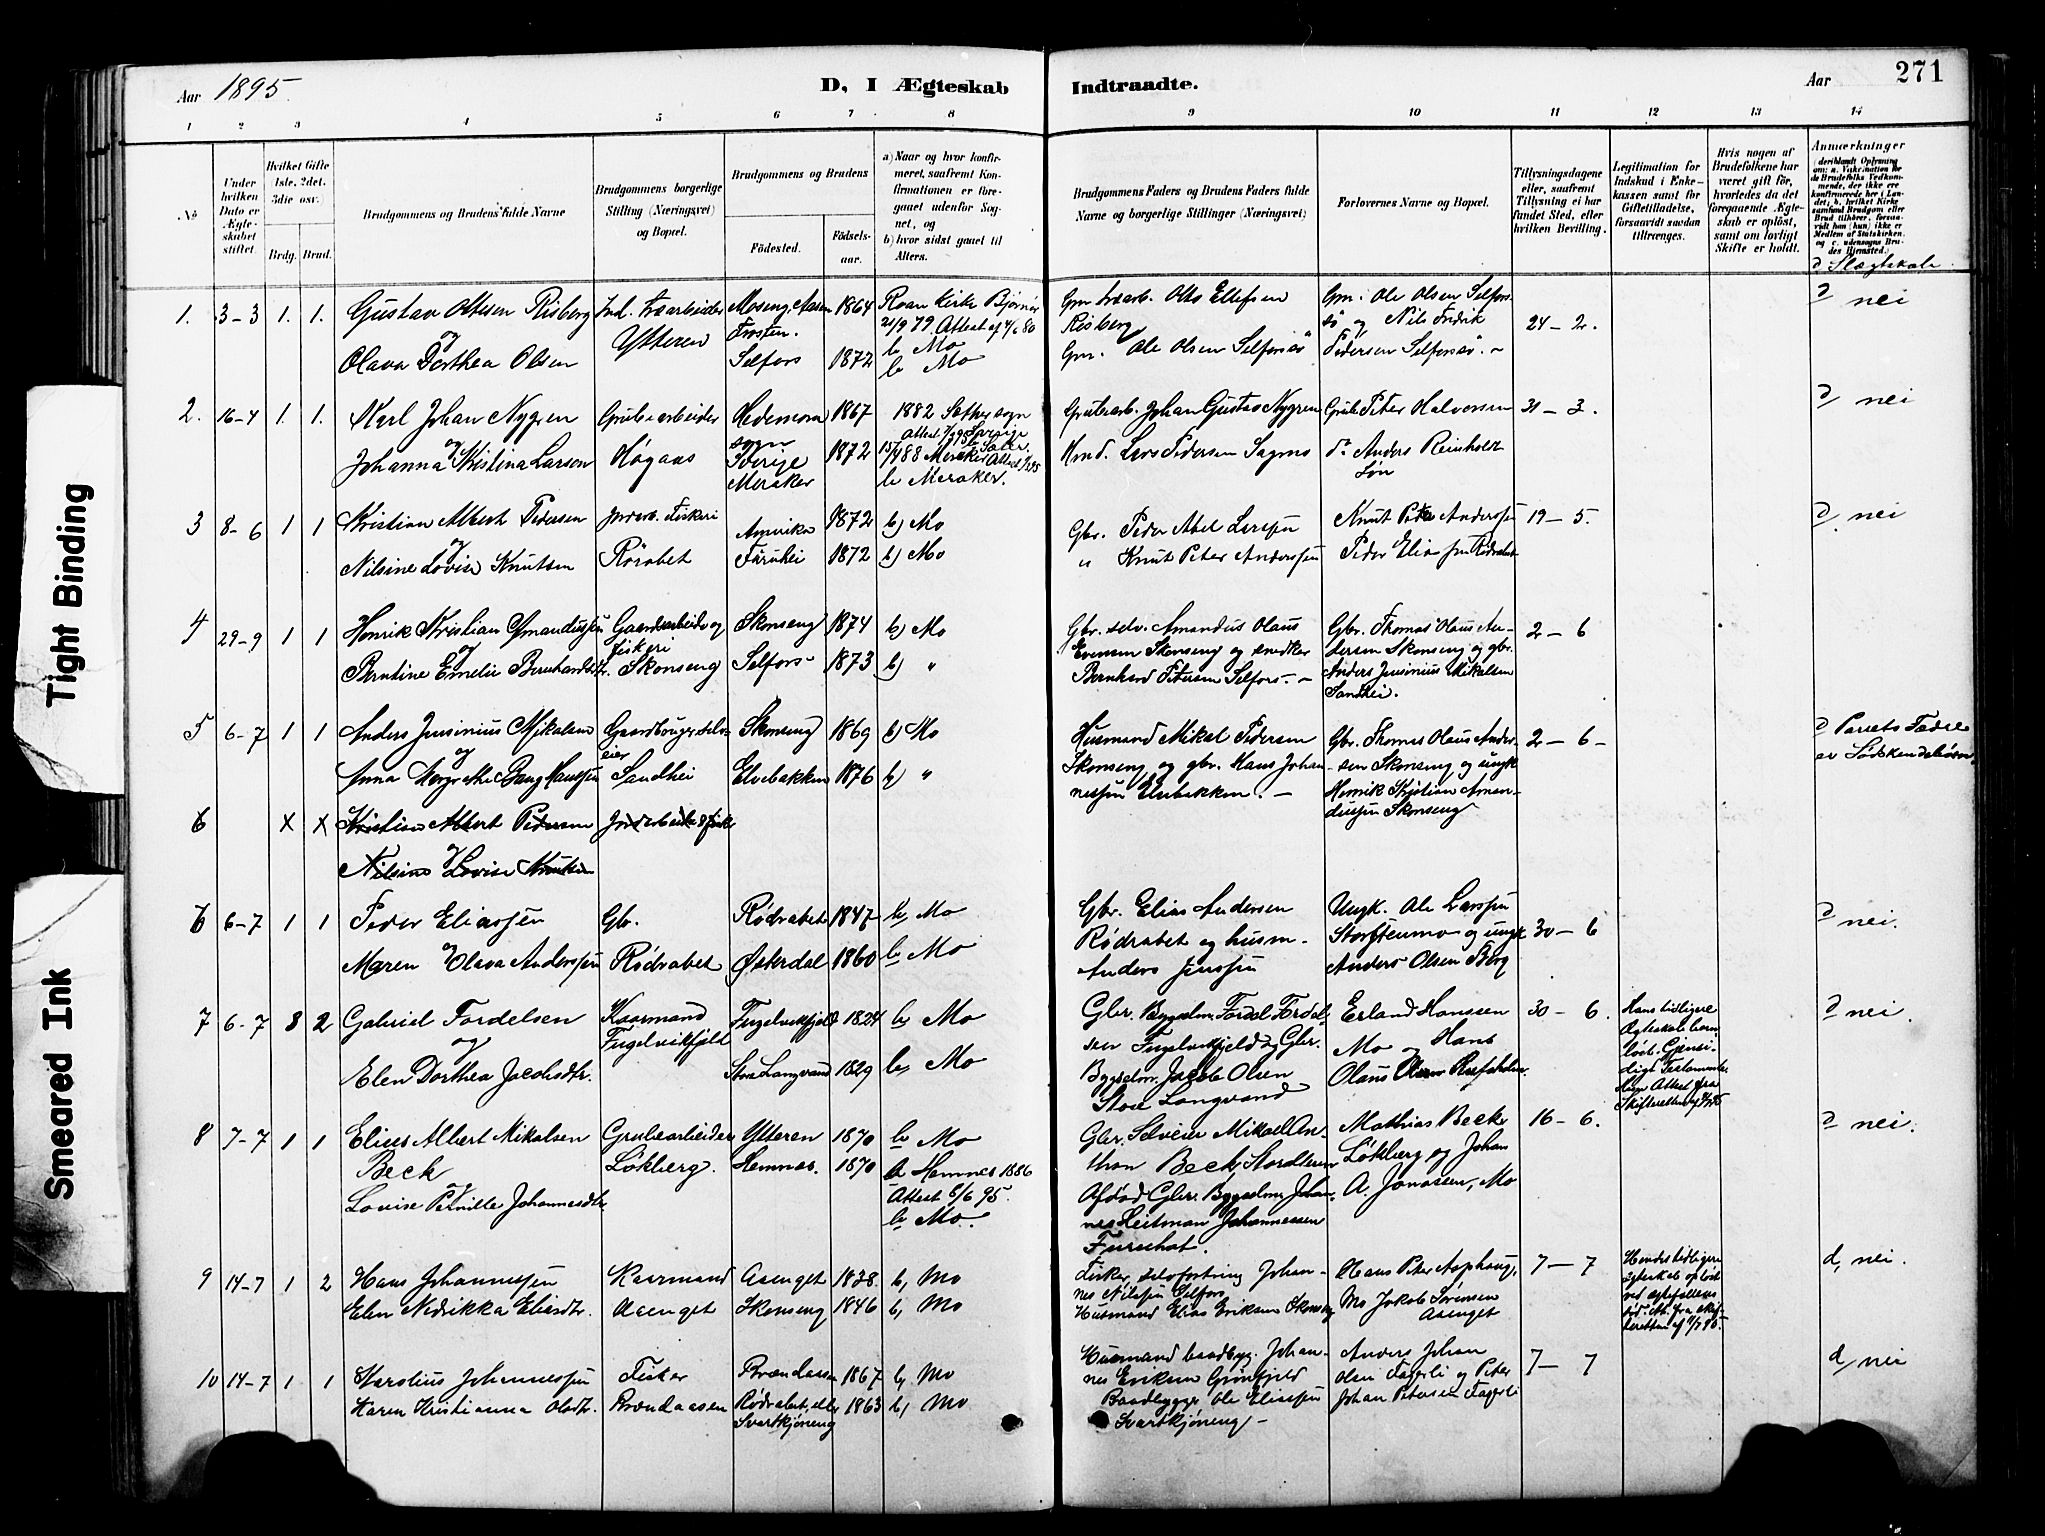 Aar 1895.
D, I Ægteskab
Indtraadte.
Aar 271
1 2 3 4 5 6 7 8 9 10 11 12 13 14
No
Under hvilken Dato er Ægteskabet stiftet.
Hvilket Gifte 1ste, 2det, 3die osv.
Brdg. Brud.
Brudgommens og Brudens fulde Navne
Brudgommens borgerlige Stilling (Næringsvei) og Bopæl.
Brudgommens og Brudens
Födested.
Födselsaar.
a) Naar og hvor konfirmeret, saafremt Konfirmationen er foregaaet udenfor Sognet, og
b) hvor sidst gaaet til Alters.
Brudgommens Faders og Brudens Faders fulde Navne og borgerlige Stillinger (Næringsvei)
Forlovernes Navne og Bopæl.
Tillysningsdagene eller, saafremt Tillysning ei har fundet Sted, efter hvilken Bevilling.
Legitimation for Indskud i Enkekassen samt for Giftetilladelse, forsaavidt saadan tiltrænges.
Hvis nogen af Brudefolkene har været gift för, hvorledes da det foregaaende Ægteskab er oplöst, samt om lovligt Skifte er holdt.
Anmærkninger
d Slægtskab.
1. 3-3 1. 1. Gustav Ottesen Risberg
og
Olava Dorthea Olsen
Ind. Træarbeider
Ytteren
Frosten. 1864
Selfors 1872
Roan Kirke Bjørnør
21/9 79. Attest af
b Mo
b Mo
Gm. træarb. Otto Ellefsen
Risberg
Gm. Ole Olsen Selforsø
Gm. Ole Olsen Selforssø og Nils Fredrik
Pedersen Selforsø.
24-2.
d nei
2. 16-4 1. 1. Karl Johan Nygren
og
Johanna Kristina Larsen
Grubearbeider
Høgaas
Hedemora
sogn
Sverige 1867
Meraker 1872
1882 Sæther sogn
b Meraker.
Grubearb. Johan Gustav Nygren
Lars Pedersen Sagmo
Grube Peter Halvorsen
do Anders Reinholdt
31-3.
d, nei
3 8-6 1 1 Kristian Albert Pedersen
og
Nilsine Lovise Knutsen
Jordarb. Fiskeri
Rörabet
Amerika 1872
1872
b) Mo
b) Mo
Gbr. Peder Abel Larsen
" Knut Peter Anderssen
Knut Peter Anderssen
Peder Eliassen Rødrabet
19-5.
d, nei
4 29-9 1 1 Henrik Kristian Amandussen
og
Berntine Emelie Bernhardsdtr.
Gaardsarbeide og
fiskeri
Skonseng
Skonseng 1874
Selfors 1873
b) Mo
b) "
Gbr. selv. Amandus Olaus
Evensen Skonseng og snedker
Bernhard Petersen Selfors.
Gbr. Thomas Olaus Andersen Skonseng og gbr.
Anders Jensinius Mikalsen
Sandhei.
2-6
5 6-7 1 1 Anders Jensinius Mikalsen
og
Anna Margrethe Bang Hanssen
Gaardbruger selveier
Sandhei
Skonseng 1869
Elvebakken 1876
b) Mo
b) "
Husmand Mikal Pedersen
Skonseng og gbr. Hans Johannessen Elvebakken.
Gbr. Thomas Olaus Andersen Skonseng og ungk
Henrik Kristian Amandussen Skonseng
2-6-
d Parets Fædre
er Södskendebörn.
6 x x Kristian Albert Pedersen
og
Nilsine Lovise Knutsen
6 6-7 1 1 Peder Eliassen
og
Maren Olava Anderssen
Gbr.
Rødrabet
Rødrabet 1847
Østerdal 1860
b, Mo
b Mo
Gbr. Elias Andersen
Rødrabet og husm.
Anders Jenssen
Ungk. Ole Larssen
Storstenmo og ungk
Anders Olsen Berg
30-6
d nei.
7 6-7 3 2 Gabriel Fordelsen
og
Elen Dorthea Jacobsdtr.
Kaarmand
Fugelvikfjeld
Fugelvikfjeld 1824
Store Langvand 1829
b, Mo
b, Mo
Gbr. Bygselm. Fordel Fordelsen Fugelvikfjeld og Gbr.
Bygselm. Jacob Olsen
Store Langvand
Erland Hanssen
Mo og Hans
Olaus Olsen
30-6.
Hans tidligere
Ægteskab barnløst. Gjensidigt Testamente.
Attest fra
Skifteretten
d nei.
8 7-7 1 1 Elius Albert Mikalsen
Beck
og
Lovise Pernille Johannesdtr.
Grubearbeider
Løkberg.
Ytteren 1870
Hemnæs. 1870
b Mo
a Hemnes 1886
Attest 5/6 95.
b Mo.
Gbr. Selveier Mikael Anthon Beck
Afdød Gbr. Bygselm. Johannes Heitman Johannessen
Mathias Beck
Løkberg og Johan
A. Jonassen, Mo
16-6.
d nei.
9 14-7 1 2 Hans Johannessen
Elen Nedrikka Eliasdtr.
Kaarmand
Aasenget
Aasenget 1838.
Skonseng 1846
b, Mo
b, Mo
Fisker, selvfostring Johannes Nilssen Selfors
Husmand Elias Eriksen Skonseng
Hans Peter Aaphaug,
Mo Jakob Sörensen
Aasenget
7-7
Hendes tidligere
ægteskab opløst
ved ægtefællens
död. Att. fra skifteretten af
d, nei.
10 14-7 1 1 Karolius Johannessen
Karen Kristianna Olsdtr.
Fisker
Brændaasen
Brændaasen 1867
Rødrabet, eller
Svartkjöneng 1863
b, Mo
b, Mo
Husmand baadbyg. Johannes Eriksen Grönfjeld
Baadbygger Ole Eliassen
Svartkjöneng
Anders Johan
Olsen Fagerli og Peter
Johan Petersen Fagerli
7-7
d, nei
Tight Binding
Smeared Ink